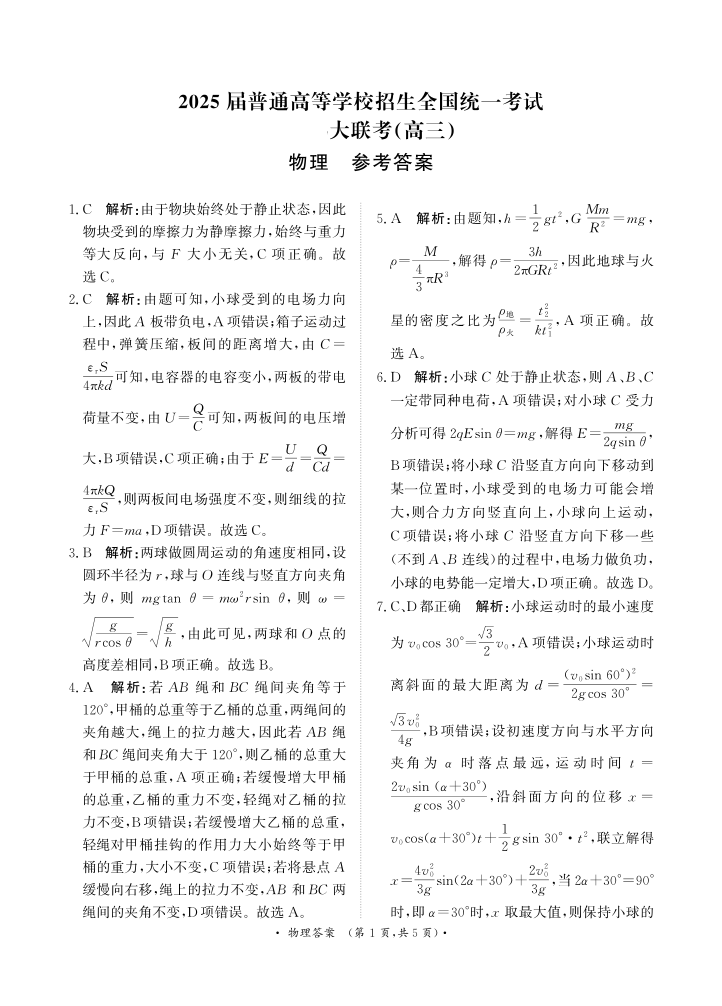 2025 届普通高等学校招生全国统一考试
大联考(高三)
物理 参考答案
1. C 解析:由于物块始终处于静止状态,因此
物块受到的摩擦力为静摩擦力,始终与重力
等大反向,与 F 大小无关,C 项正确。故
选 C。
2. C 解析:由题可知,小球受到的电场力向
上,因此 A 板带负电,A 项错误;箱子运动过
程中,弹簧压缩,板间的距离增大,由 C=
εᵣS/4πkd 可知,电容器的电容变小,两板的带电
荷量不变,由 U=Q/C 可知,两板间的电压增
大,B 项错误,C 项正确;由于 E=U/d=Q/Cd=
4πkQ/εᵣS,则两板间电场强度不变,则细线的拉
力 F=ma,D 项错误。故选 C。
3. B 解析:两球做圆周运动的角速度相同,设
圆环半径为 r,球与 O 连线与竖直方向夹角
为 θ,则 mgtan θ = mω²rsin θ,则 ω =
√(g/rcos θ)=√(g/h),由此可见,两球和 O 点的
高度差相同,B 项正确。故选 B。
4. A 解析:若 AB 绳和 BC 绳间夹角等于
120°,甲桶的总重等于乙桶的总重,两绳间的
夹角越大,绳上的拉力越大,因此若 AB 绳
和 BC 绳间夹角大于 120°,则乙桶的总重大
于甲桶的总重,A 项正确;若缓慢增大甲桶
的总重,乙桶的重力不变,轻绳对乙桶的拉
力不变,B 项错误;若缓慢增大乙桶的总重,
轻绳对甲桶挂钩的作用力大小始终等于甲
桶的重力,大小不变,C 项错误;若将悬点 A
缓慢向右移,绳上的拉力不变,AB 和 BC 两
绳间的夹角不变,D 项错误。故选 A。
5. A 解析:由题知,h=1/2 gt²,G Mm/R²=mg,
ρ=M/(4/3 πR³),解得 ρ=3h/2πGRt²,因此地球与火
星的密度之比为 ρ地/ρ火=t₂²/kt₁²,A 项正确。故
选 A。
6. D 解析:小球 C 处于静止状态,则 A、B、C
一定带同种电荷,A 项错误;对小球 C 受力
分析可得 2qEsin θ=mg,解得 E=mg/2qsin θ,
B 项错误;将小球 C 沿竖直方向向下移动到
某一位置时,小球受到的电场力可能会增
大,则合力方向竖直向上,小球向上运动,
C 项错误;将小球 C 沿竖直方向下移一些
(不到 A、B 连线)的过程中,电场力做负功,
小球的电势能一定增大,D 项正确。故选 D。
7. C、D 都正确 解析:小球运动时的最小速度
为 v₀cos 30°=√3/2 v₀,A 项错误;小球运动时
离斜面的最大距离为 d=(v₀sin 60°)²/2gcos 30°=
√3v₀²/4g,B 项错误;设初速度方向与水平方向
夹角为 α 时落点最远,运动时间 t=
2v₀sin (α+30°)/gcos 30°,沿斜面方向的位移 x=
v₀cos(α+30°)t+1/2 gsin 30°·t²,联立解得
x=4v₀²/3g sin(2α+30°)+2v₀²/3g,当 2α+30°=90°
时,即 α=30°时,x 取最大值,则保持小球的
· 物理答案 (第 1 页,共 5 页) ·